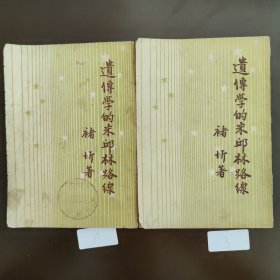 遺傳學的米邱林路線
褚圻著
遺傳學的米邱林路線
褚圻著